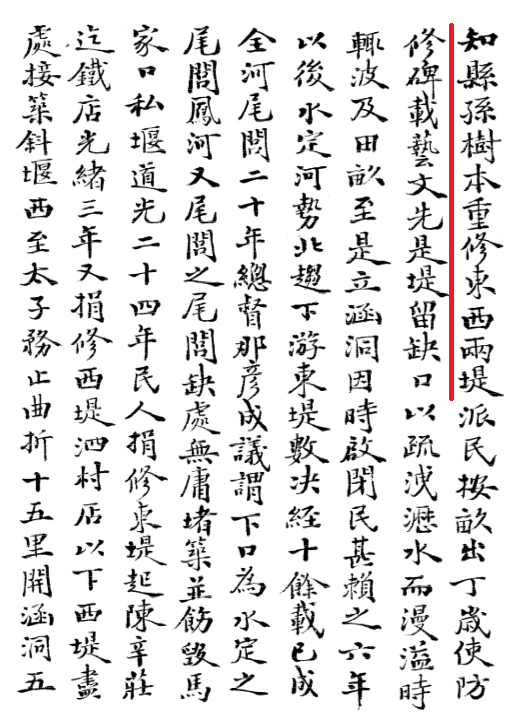 知縣孫樹本重修東西兩堤派民按畝出丁歲使防
修碑載藝文先是堤留缺口以疏洩瀝水而漫溢時
輒波及田畝至是立涵洞因時啟閉民甚賴之六年
以後水定河勢北趨下游東堤數决經十餘載已成
全河尾閭二十年總督那彦成議謂下口為水定之
尾閭鳳河又尾閭之尾閭缺處無庸堵築並飭毀馬
家口私堰道光二十四年民人捐修東堤起陳辛莊
迄鐵店光緒三年又捐修西堤泗村店以下西堤盡
處接築斜堰西至太子務止曲折十五里開涵洞五